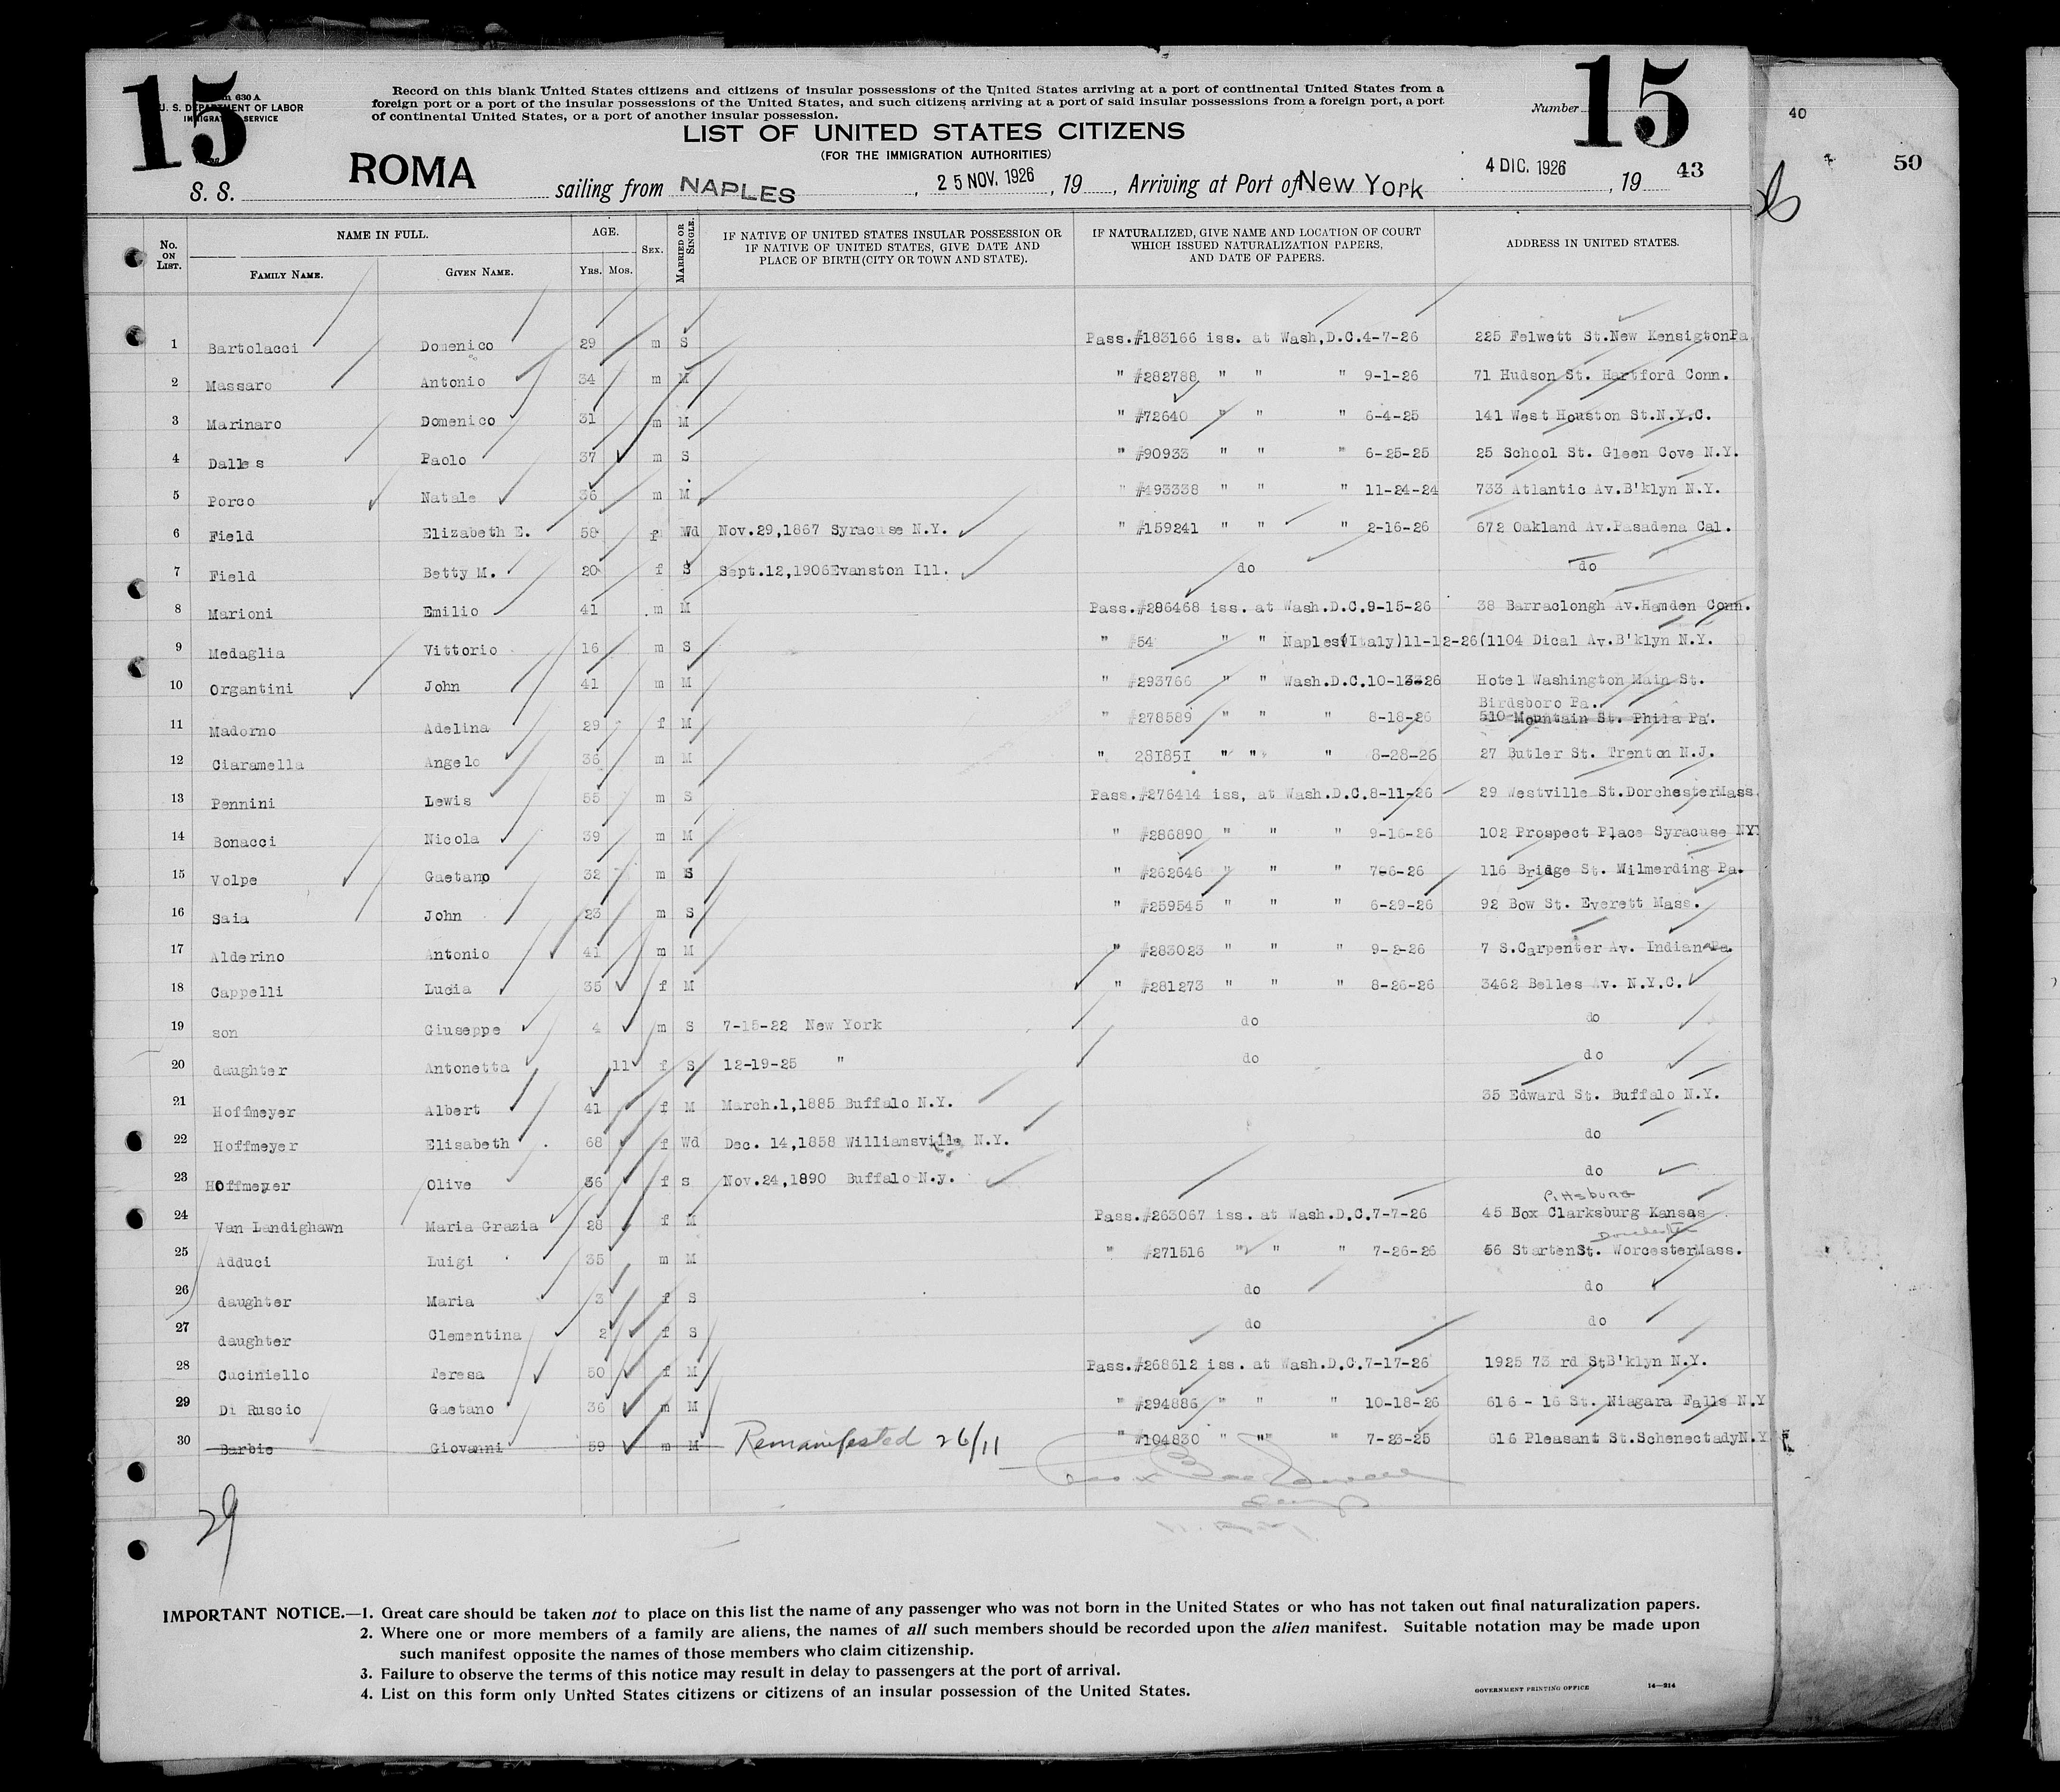 15
Form 630 A
U. S. DEPARTMENT OF LABOR
IMMIGRATION SERVICE
Record on this blank United States citizens and citizens of insular possessions of the United States arriving at a port of continental United States from a
foreign port or a port of the insular possessions of the United States, and such citizens arriving at a port of said insular possessions from a foreign port, a port
of continental United States, or a port of another insular possession.
Number 15
LIST OF UNITED STATES CITIZENS
(FOR THE IMMIGRATION AUTHORITIES)
S. S. ROMA sailing from NAPLES, 25 NOV. 1926, 19, Arriving at Port of New York 4 DIC. 1926, 19 43
40
50
No. ON LIST. NAME IN FULL. FAMILY NAME. GIVEN NAME. AGE. YRS. MOS. SEX. MARRIED OR SINGLE. IF NATIVE OF UNITED STATES INSULAR POSSESSION OR IF NATIVE OF UNITED STATES, GIVE DATE AND PLACE OF BIRTH (CITY OR TOWN AND STATE). IF NATURALIZED, GIVE NAME AND LOCATION OF COURT WHICH ISSUED NATURALIZATION PAPERS, AND DATE OF PAPERS. ADDRESS IN UNITED STATES.
1 Bartolacci Domenico 29 m S Pass.#183166 iss. at Wash,D.C.4-7-26 225 Felwett St.New KensigtonPa
2 Massaro Antonio 34 m M " #282788 " " " 9-1-26 71 Hudson St. Hartford Conn.
3 Marinaro Domenico 31 m M " #72640 " " " 6-4-25 141 West Houston St.N.Y.C.
4 Dalles Paolo 37 m S " #90933 " " " 6-25-25 25 School St. Gleen Cove N.Y.
5 Porco Natale 36 m M " #493338 " " " 11-24-24 733 Atlantic Av.B'klyn N.Y.
6 Field Elizabeth E. 58 f Wd Nov.29,1867 Syracuse N.Y. " #159241 " " " 2-16-26 672 Oakland Av.Pasadena Cal.
7 Field Betty M. 20 f S Sept.12,1906Evanston Ill. do do
8 Marioni Emilio 41 m M Pass.#286468 iss. at Wash.D.C.9-15-26 38 Barraclongh Av.Hamden Conn.
9 Medaglia Vittorio 16 m S " #54 " " Naples(Italy)11-12-26(1104 Dical Av.B'klyn N.Y.
10 Organtini John 41 m M " #293766 " " Wash.D.C.10-13-26 Hotel Washington Main St.
Birdsboro Pa.
11 Madorno Adelina 29 f M " #278589 " " " 8-18-26 510 Mountain St. Phila Pa.
12 Ciaramella Angelo 36 m M " 281851 " " " 8-28-26 27 Butler St. Trenton N.J.
13 Pennini Lewis 55 m S Pass.#276414 iss, at Wash.D.C.8-11-26 29 Westville St.DorchesterMass.
14 Bonacci Nicola 39 m M " #286890 " " " 9-16-26 102 Prospect Place Syracuse NY
15 Volpe Gaetano 32 m S " #262646 " " " 7-6-26 116 Bridge St. Wilmerding Pa.
16 Saia John 23 m S " #259545 " " " 6-29-26 92 Bow St. Everett Mass.
17 Alderino Antonio 41 m M " #283023 " " " 9-2-26 7 S.Carpenter Av. Indian Pa.
18 Cappelli Lucia 35 f M " #281273 " " " 8-26-26 3462 Belles Av. N.Y.C.
19 son Giuseppe 4 m S 7-15-22 New York do do
20 daughter Antonetta 11 f S 12-19-25 " do do
21 Hoffmeyer Albert 41 f M March.1,1885 Buffalo N.Y. 35 Edward St. Buffalo N.Y.
22 Hoffmeyer Elisabeth 68 f Wd Dec. 14,1858 Williamsville N.Y. do
23 Hoffmeyer Olive 36 f S Nov.24,1890 Buffalo N.y. do
Pittsburg
24 Van Landighawn Maria Grazia 28 f M Pass.#263067 iss. at Wash.D.C.7-7-26 45 Box Clarksburg Kansas
Dorchester
25 Adduci Luigi 35 m M " #271516 " " " 7-26-26 56 StartenSt. WorcesterMass.
26 daughter Maria 3 f S do do
27 daughter Clementina 2 f S do do
28 Cuciniello Teresa 50 f M Pass.#268612 iss. at Wash.D.C.7-17-26 1925 73 rd StB'klyn N.Y.
29 Di Ruscio Gaetano 36 m M " #294886 " " " 10-18-26 616 - 16 St. Niagara Falls N.Y
30 Barbie Giovanni 59 m M Remanifested 26/11 " #104830 " " " 7-23-25 616 Pleasant St.SchenectadyN.Y.
29
IMPORTANT NOTICE.—1. Great care should be taken not to place on this list the name of any passenger who was not born in the United States or who has not taken out final naturalization papers.
2. Where one or more members of a family are aliens, the names of all such members should be recorded upon the alien manifest. Suitable notation may be made upon
such manifest opposite the names of those members who claim citizenship.
3. Failure to observe the terms of this notice may result in delay to passengers at the port of arrival.
4. List on this form only United States citizens or citizens of an insular possession of the United States.
GOVERNMENT PRINTING OFFICE 14—914